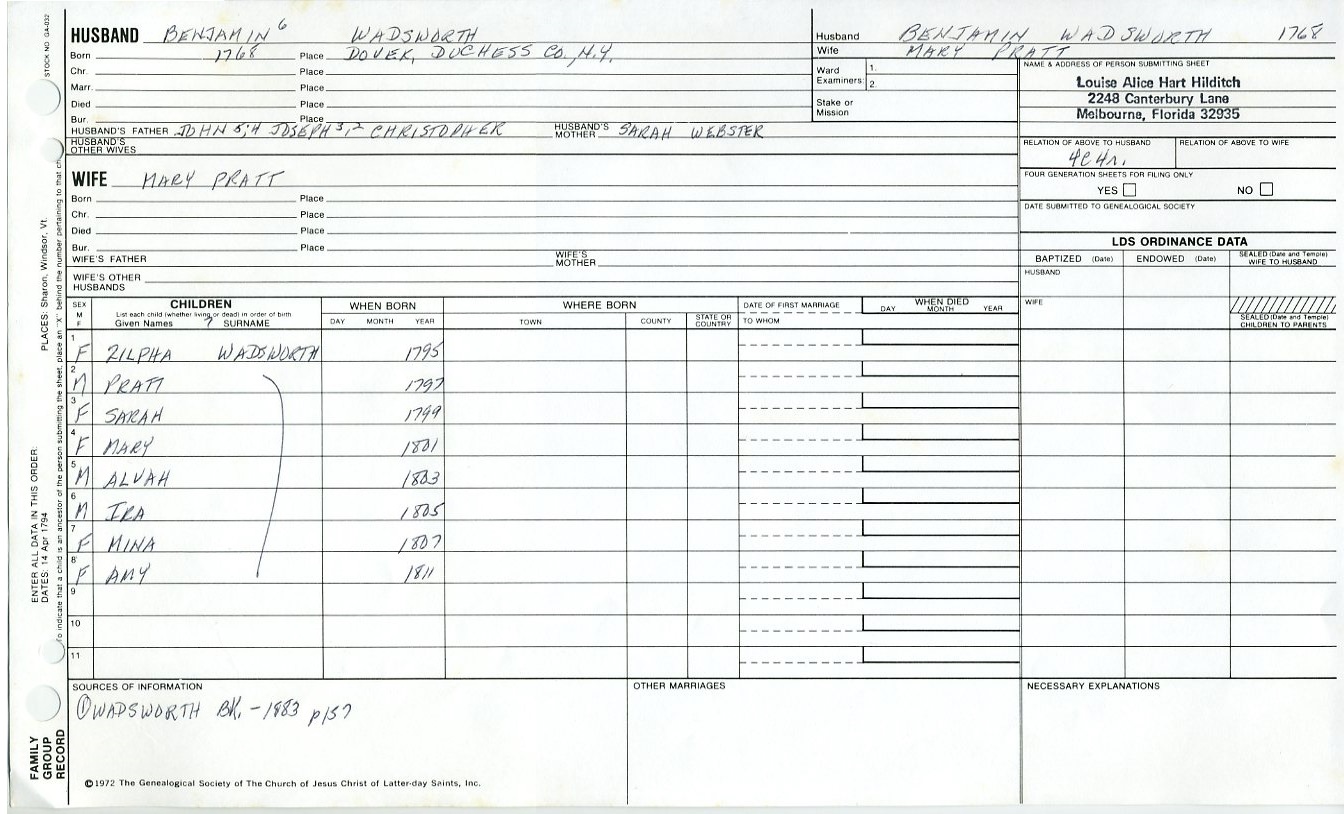 STOCK NO. GA-032
PLACES: Sharon, Windsor, Vt.
ENTER ALL DATA IN THIS ORDER:
DATES: 14 Apr 1794
To indicate that a child is an ancestor of the person submitting the sheet, place an "X" behind the number pertaining to that ch
FAMILY GROUP RECORD
HUSBAND BENJAMIN 6 WADSWORTH
Born 1768 Place DOVER, DUCHESS CO., N.Y.
Chr. Place
Marr. Place
Died Place
Bur. Place
HUSBAND'S FATHER JOHN 5,4 JOSEPH 3,2 CHRISTOPHER HUSBAND'S MOTHER SARAH WEBSTER
HUSBAND'S OTHER WIVES
Husband BENJAMIN WADSWORTH 1768
Wife MARY PRATT
Ward 1.
Examiners: 2.
Stake or Mission
NAME & ADDRESS OF PERSON SUBMITTING SHEET
Louise Alice Hart Hilditch
2248 Canterbury Lane
Melbourne, Florida 32935
RELATION OF ABOVE TO HUSBAND RELATION OF ABOVE TO WIFE
4c4r.
FOUR GENERATION SHEETS FOR FILING ONLY
YES NO
DATE SUBMITTED TO GENEALOGICAL SOCIETY
WIFE MARY PRATT
Born Place
Chr. Place
Died Place
Bur. Place
WIFE'S FATHER WIFE'S MOTHER
WIFE'S OTHER HUSBANDS
LDS ORDINANCE DATA
BAPTIZED (Date) ENDOWED (Date) SEALED (Date and Temple) WIFE TO HUSBAND
HUSBAND
WIFE
SEALED (Date and Temple) CHILDREN TO PARENTS
SEX M F CHILDREN WHEN BORN WHERE BORN DATE OF FIRST MARRIAGE WHEN DIED
List each child (whether living or dead) in order of birth
Given Names ? SURNAME DAY MONTH YEAR TOWN COUNTY STATE OR COUNTRY TO WHOM DAY MONTH YEAR
1 F ZILPHA WADSWORTH 1795
2 M PRATT 1797
3 F SARAH 1799
4 F MARY 1801
5 M ALVAH 1803
6 M IRA 1805
7 F MINA 1807
8 F AMY 1811
9
10
11
SOURCES OF INFORMATION OTHER MARRIAGES NECESSARY EXPLANATIONS
① WADSWORTH BK. - 1883 p157
©1972 The Genealogical Society of The Church of Jesus Christ of Latter-day Saints, Inc.